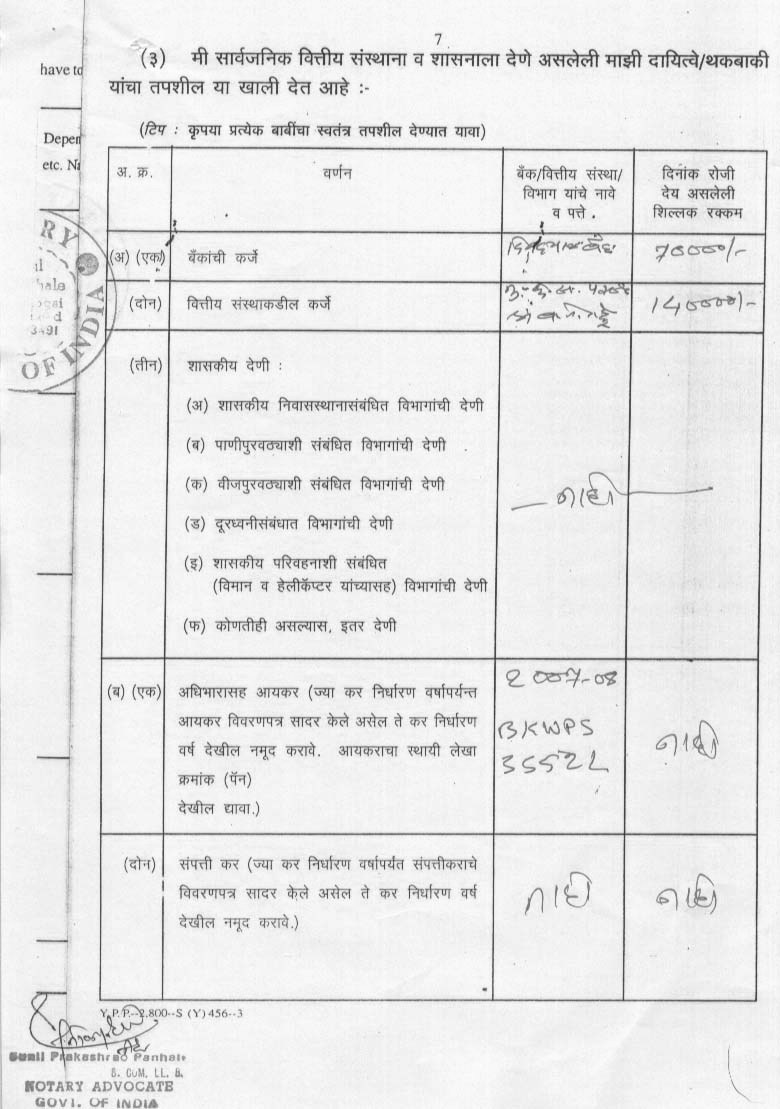 7
have to
(३) मी सार्वजनिक वित्तीय संस्थाना व शासनाला देणे असलेली माझी दायित्वे/थकबाकी
यांचा तपशील या खाली देत आहे :-
(टिप : कृपया प्रत्येक बाबींचा स्वतंत्र तपशील देण्यात यावा)
Depen
etc. Na
अ. क्र. वर्णन बँक/वित्तीय संस्था/ दिनांक रोजी
विभाग यांचे नावे देय असलेली
व पत्ते . शिल्लक रक्कम
(अ) (एक) बँकांची कर्जे 70000/-
(दोन) वित्तीय संस्थाकडील कर्जे 140000/-
OF INDIA
(तीन) शासकीय देणी :
(अ) शासकीय निवासस्थानासंबंधित विभागांची देणी
(ब) पाणीपुरवठ्याशी संबंधित विभागांची देणी
(क) वीजपुरवठ्याशी संबंधित विभागांची देणी
— नाही —
(ड) दूरध्वनीसंबधात विभागांची देणी
(इ) शासकीय परिवहनाशी संबंधित
(विमान व हेलीकॅप्टर यांच्यासह) विभागांची देणी
(फ) कोणतीही असल्यास, इतर देणी
(ब) (एक) अधिभारासह आयकर (ज्या कर निर्धारण वर्षापर्यन्त 2007-08
आयकर विवरणपत्र सादर केले असेल ते कर निर्धारण BKWPS
वर्ष देखील नमूद करावे. आयकराचा स्थायी लेखा नाही
क्रमांक (पॅन)
देखील द्यावा.)
(दोन) संपत्ती कर (ज्या कर निर्धारण वर्षापर्यंत संपत्तीकराचे
विवरणपत्र सादर केले असेल ते कर निर्धारण वर्ष नाही नाही
देखील नमूद करावे.)
Y.P.P.--2,800--S (Y) 456--3
Sunil Prakashrao Panhale
B. COM. LL. B.
NOTARY ADVOCATE
GOVT. OF INDIA